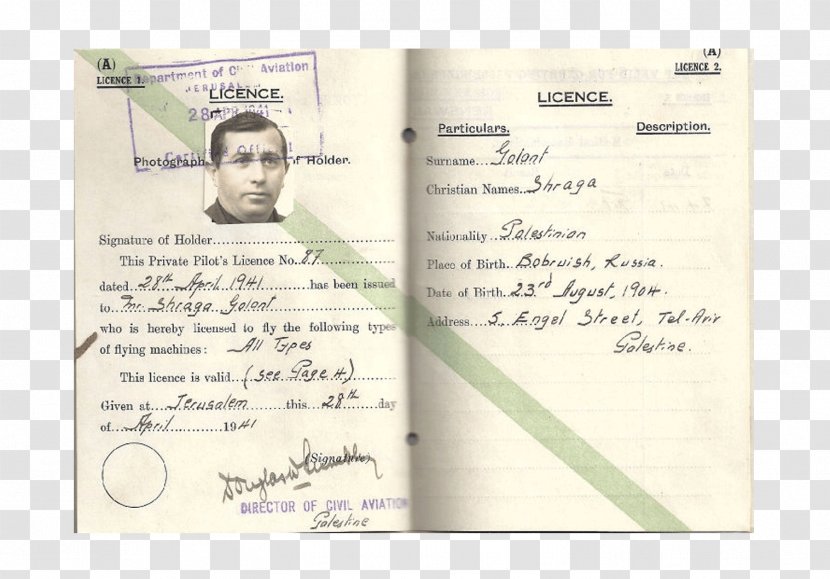 (A)
LICENCE 1.
Department of Civil Aviation
JERUSALEM
LICENCE.
28 APR 1941
Photograph of Holder.
Signature of Holder
This Private Pilot's Licence No. 87
dated 28th April 1941 has been issued
to Mr. Shraga Golant
who is hereby licensed to fly the following types
of flying machines: All Types
This licence is valid (see Page 4)
Given at Jerusalem this 28th day
of April 1941
(Signature)
DIRECTOR OF CIVIL AVIATION
Palestine
(A)
LICENCE 2.
LICENCE.
Particulars. Description.
Surname Golant
Christian Names Shraga
Nationality Palestinian
Place of Birth Bobruish, Russia.
Date of Birth 23rd August, 1904.
Address 5, Engel Street, Tel-Aviv
Palestine.